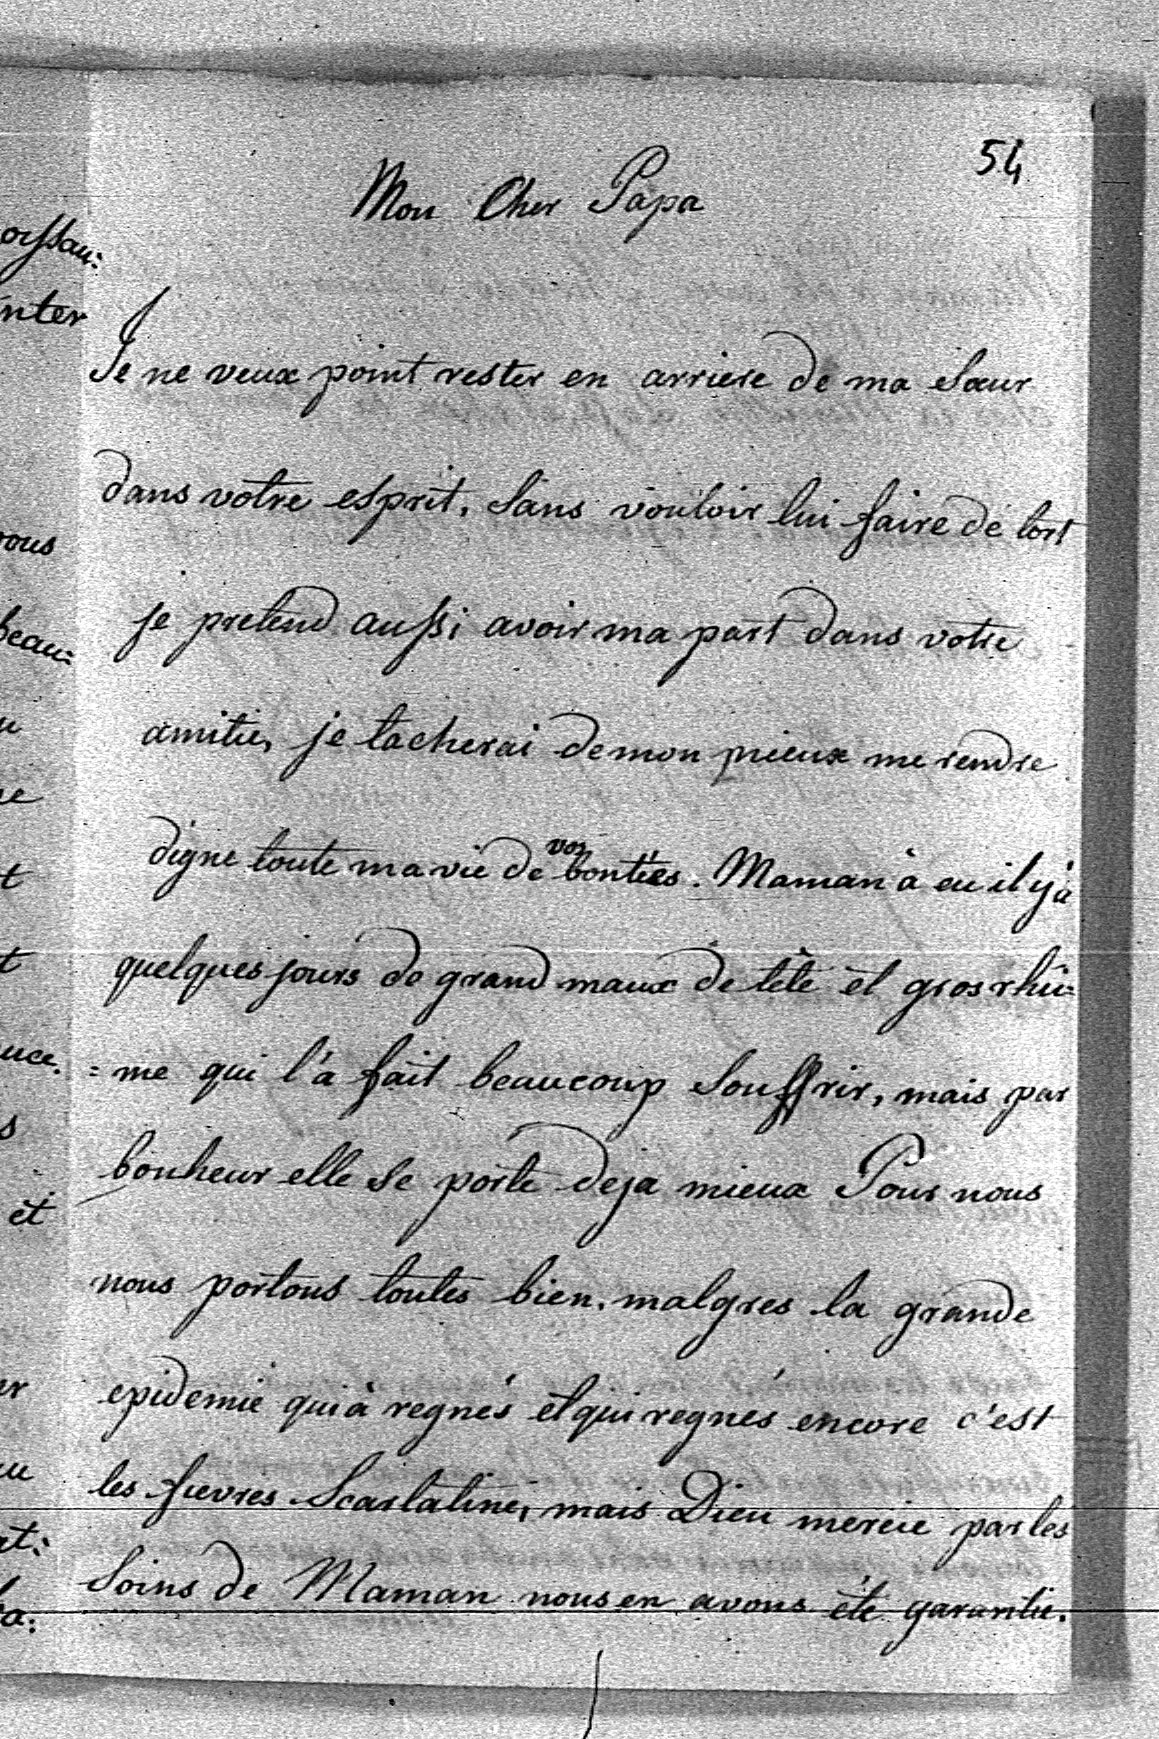 54
Mon Cher Papa
Je ne veux point rester en arriere de ma Sœur
dans votre esprit, Sans vouloir lui faire de tort
je pretend aussi avoir ma part dans votre
amitie, je tacherai de mon mieux me rendre
digne toute ma vie de vos bontées. Maman à eu il y'a
quelques jours de grand maux de tête et gros rhu=
=me qui l'a fait beaucoup Souffrir, mais par
bonheur elle Se porte deja mieux Pour nous
nous portons toutes bien, malgres la grande
epidemie qui à regnés et qui regnés encore c'est
les fievres Scarlatine, mais Dieu mercie par les
Soins de Maman nous en avons été garantie.
nter
vous
beau=
et